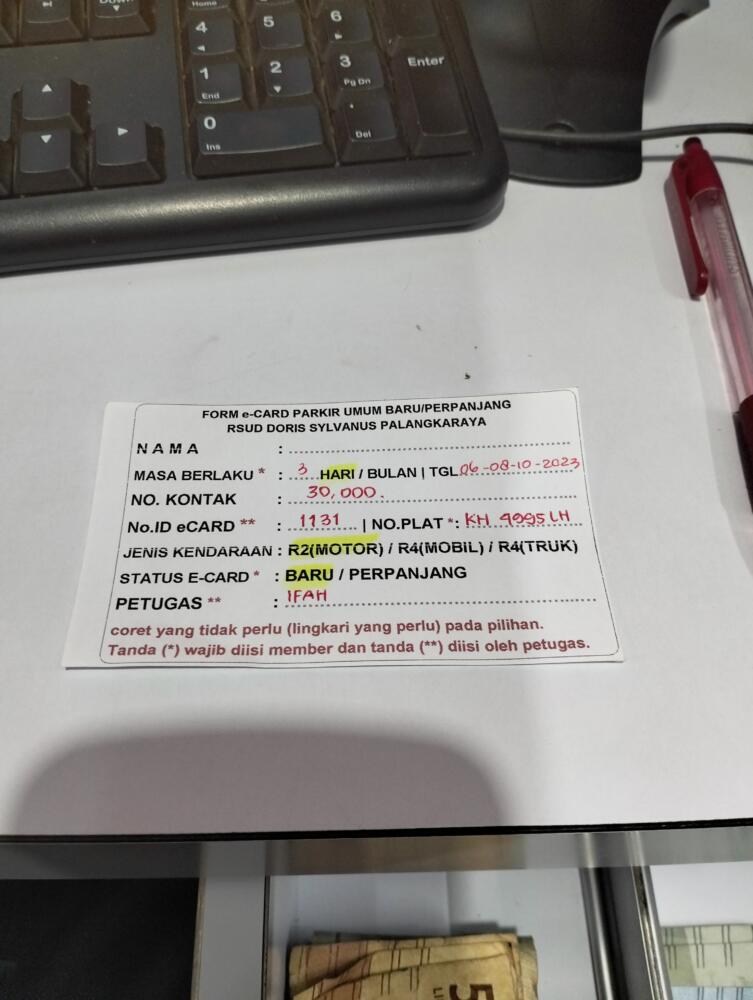 Home
4
5
6
1
End
2
3
Pg Dn
Enter
0
Ins
.
Del
FORM e-CARD PARKIR UMUM BARU/PERPANJANG
RSUD DORIS SYLVANUS PALANGKARAYA
N A M A :
MASA BERLAKU * : 3 HARI / BULAN | TGL 06-08-10-2023
NO. KONTAK : 30,000.
No.ID eCARD ** : 1131 | NO.PLAT *: KH 4995 LH
JENIS KENDARAAN : R2(MOTOR) / R4(MOBIL) / R4(TRUK)
STATUS E-CARD * : BARU / PERPANJANG
PETUGAS ** : IFAH
coret yang tidak perlu (lingkari yang perlu) pada pilihan.
Tanda (*) wajib diisi member dan tanda (**) diisi oleh petugas.
5